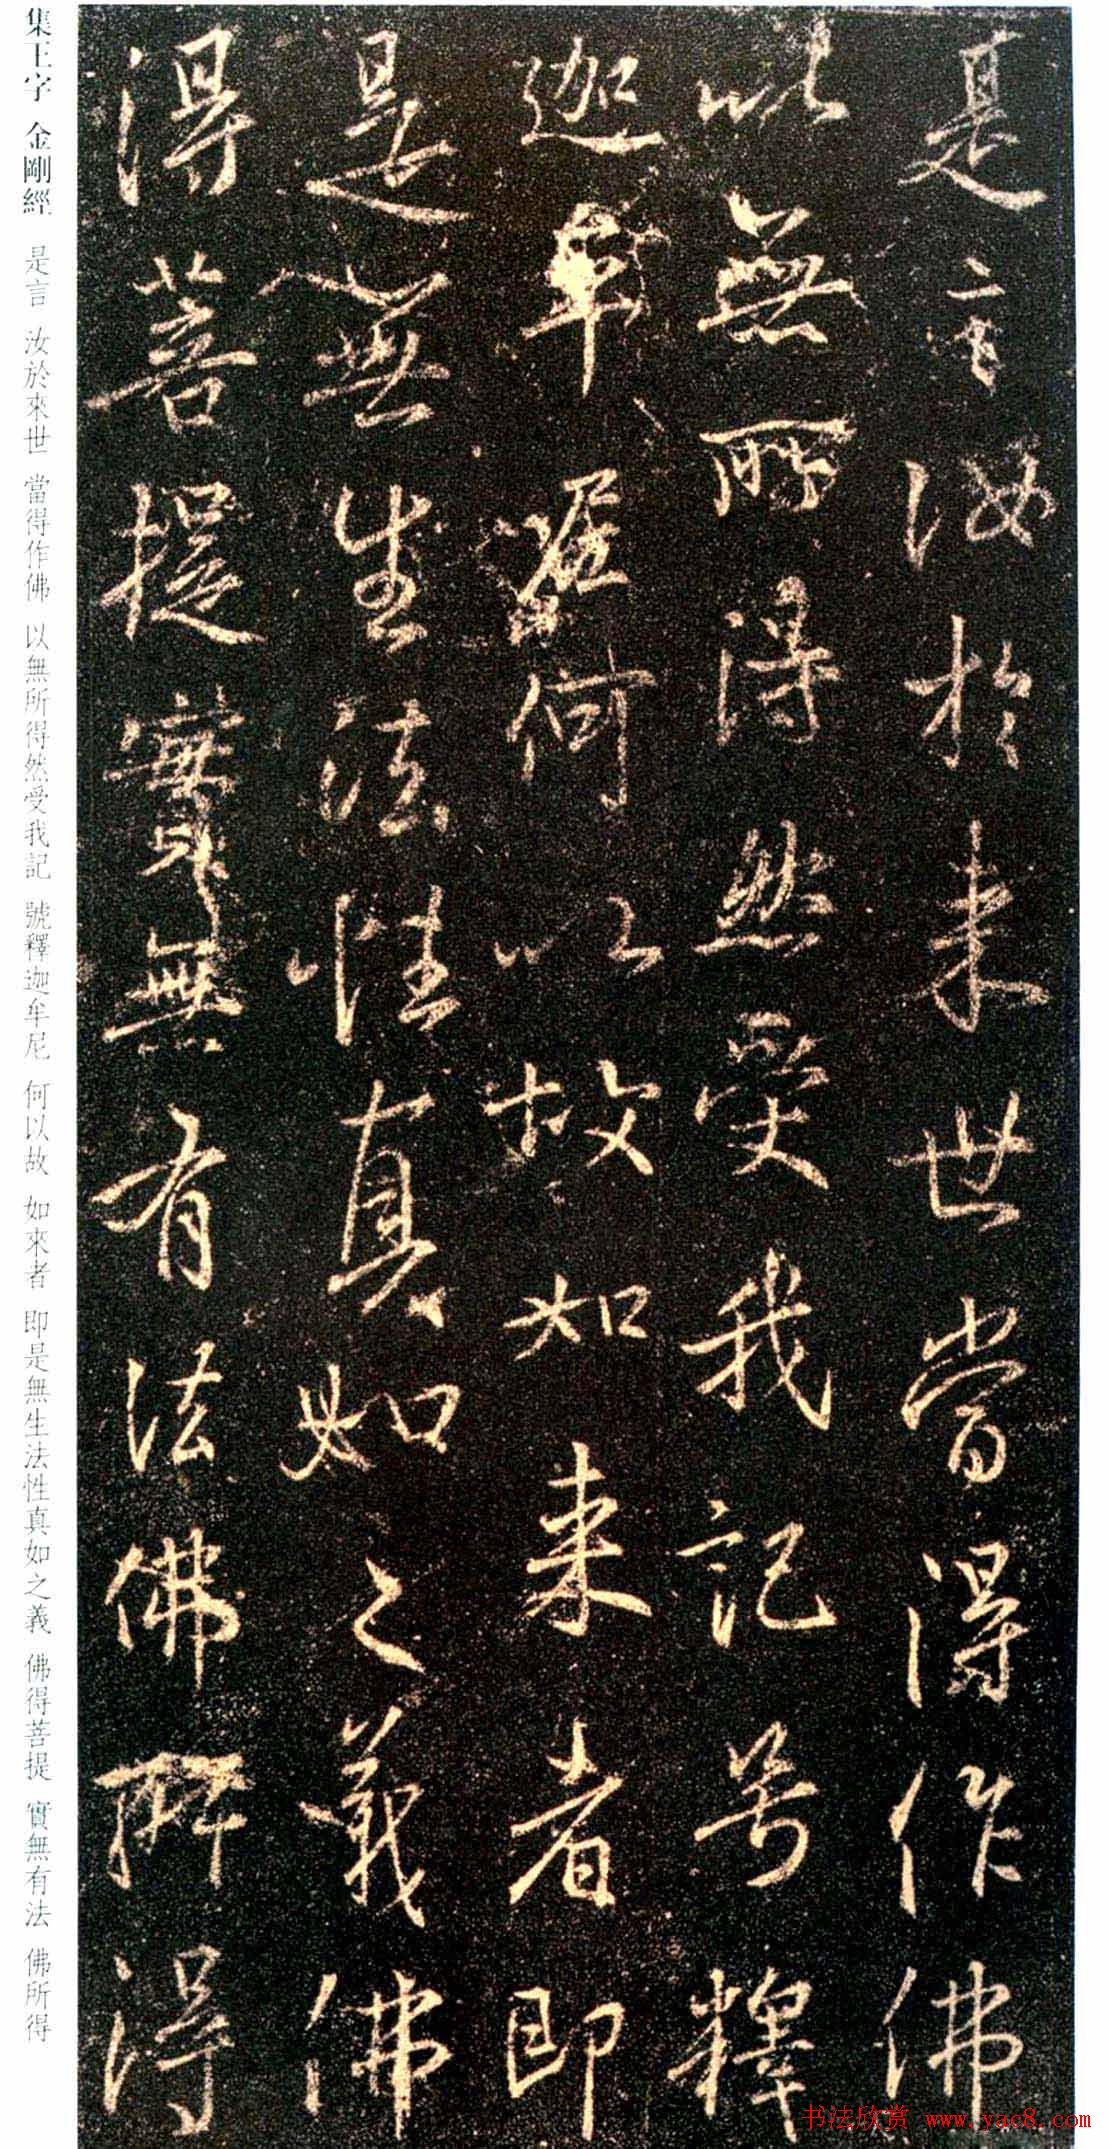 是言汝於来世當得作佛
以無所得然受我記号釋
迦牟尼何以故如来者即
是無生法性真如之義佛
得菩提實無有法佛所得
集王字 金剛經 是言 汝於來世 當得作佛 以無所得然受我記 號釋迦牟尼 何以故 如來者 即是無生法性真如之義 佛得菩提 實無有法 佛所得
书法欣赏 www.yac8.com